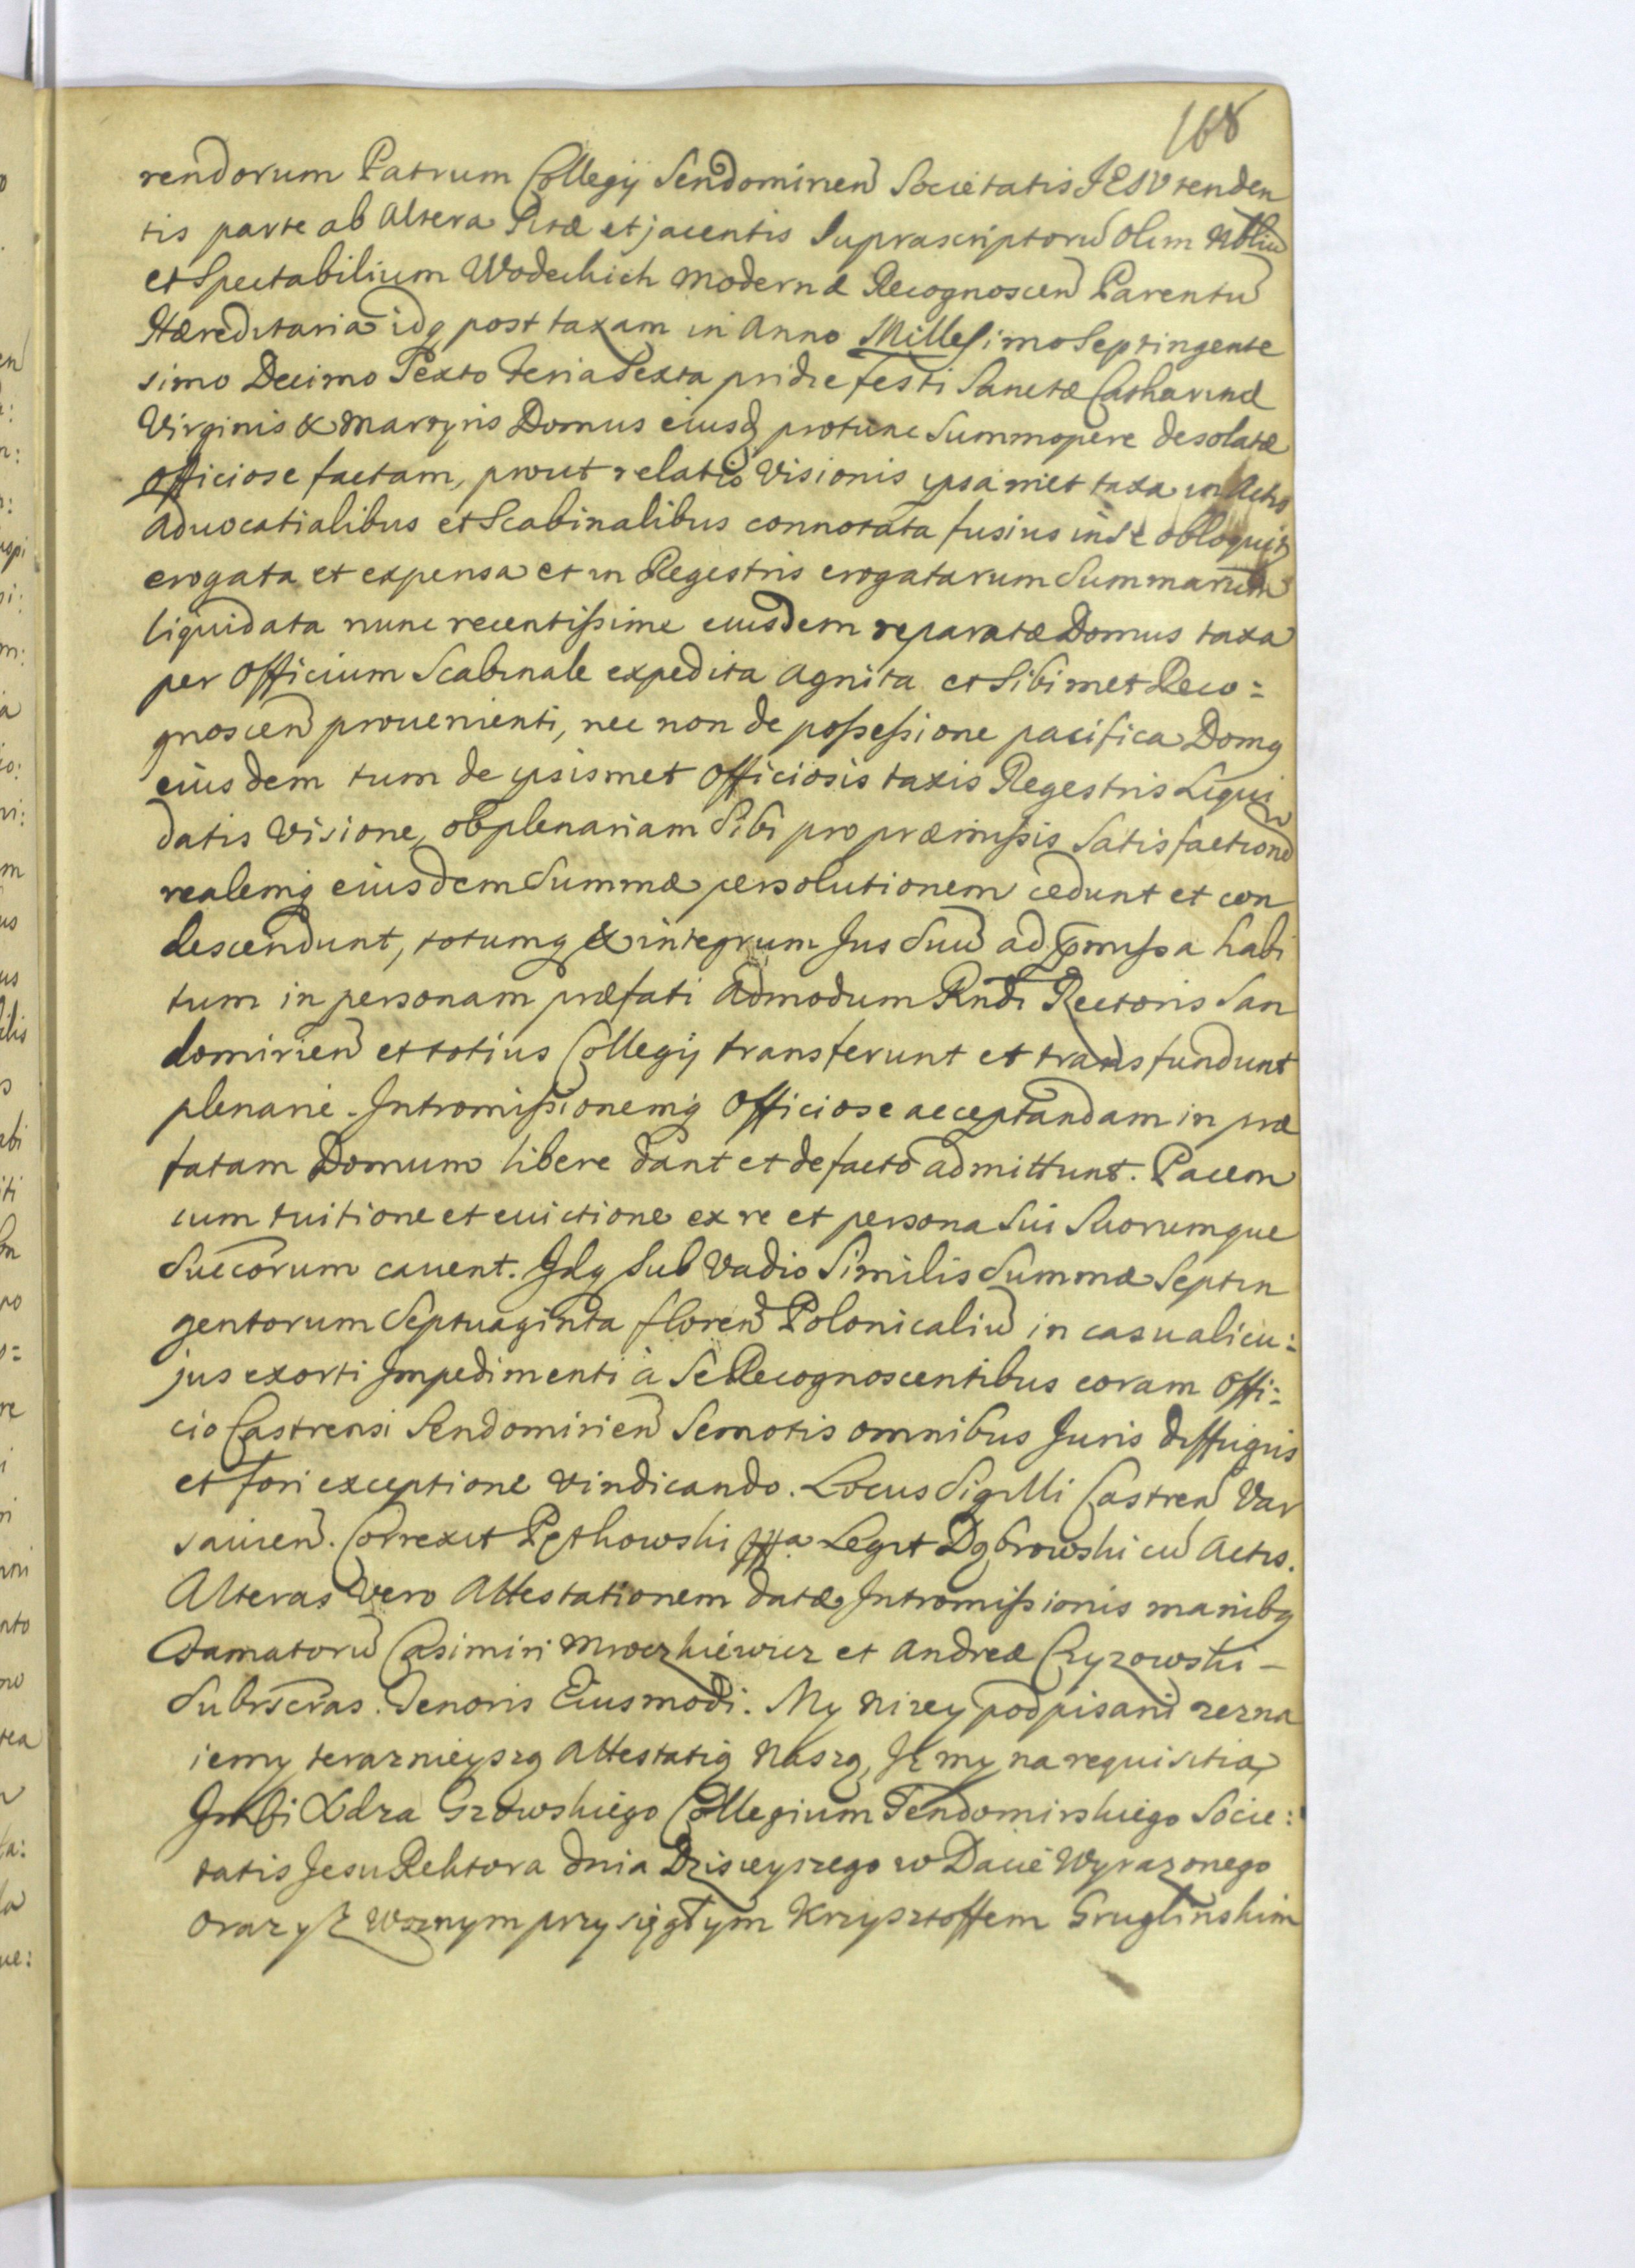 168
rendorum Patrum Collegij Sendomirien Societatis JESV tenden
tis parte ab altera Sitæ et jacentis Suprascriptorū olim Nbliū
et Spectabilium Wodeckich modernæ Recognoscen Parentū
Hæreditaria idq post taxam in Anno Millesimo Septingente
simo Decimo Sexto Feria Sexta pridie festi Sanctæ Catharinæ
Virginis & Martyris Domus eiusd protunc Summopere desolatæ
officiose factam, prout relatio Visionis ipsamet taxa in Actis
Aduocatialibus et Scabinalibus connotata fusius in se obloquit
erogata et expensa et in Regestris erogatarum Summarum
liquidata nunc recentissime eiusdem reparatæ Domus taxa
per Officium Scabinale expedita agnita et Sibimet Reco=
gnoscen prouenienti, nec non de possessione pacifica Domq
eiusdem tum de ipsismet officiosis taxis Regestris Liqui
datis Visione, ob plenariam Sibi pro præmissis Satisfactionē
realemq eiusdem Summæ persolutionem cedunt et con
descendunt, totumq & integrum Jus Suū ad pmissa habi
tum in personam præfati admodum Rndi Rectoris San
domirien et totius Collegij transferunt et transfundunt
plenarie. Intromissionemq Officiose acceptandam in præ
fatam Domum libere dant et de facto admittunt. Pacem
cum tuitione et euictione ex re et persona Sui Suorumque
Succorum cauent. Idq Sub Vadio Similis Summæ Septin
gentorum Septuaginta floren Polonicaliū in casu alicu=
jus exorti Impedimenti à Se Recognoscentibus coram Offi=
cio Castrensi Sendomirien Semotis omnibus Juris diffugiis
et fori exceptione vindicando. Locus Sigilli Castren Var
sauien. Correxit Pętkowski mppa Legit Dąbrowski cū Actis.
Alteras Vero Attestationem datæ Intromissionis manibq
Camatorū Casimiri Mroczkiewicz et Andreæ Czyzowski –
Subrscras. Tenoris Eiusmodi. My nizey podpisani zezna
iemy teraznieyszą Attestatią Naszą, Iz my na requisitią
Jmści Xdza Gzowskiego Collegium Sendomirskiego Socie=
tatis Jesu Rektora dnia Dzisieyszego w Dacie Wyrazonego
oraz y z woznym przysięgłym Krzysztoffem Gruglinskim